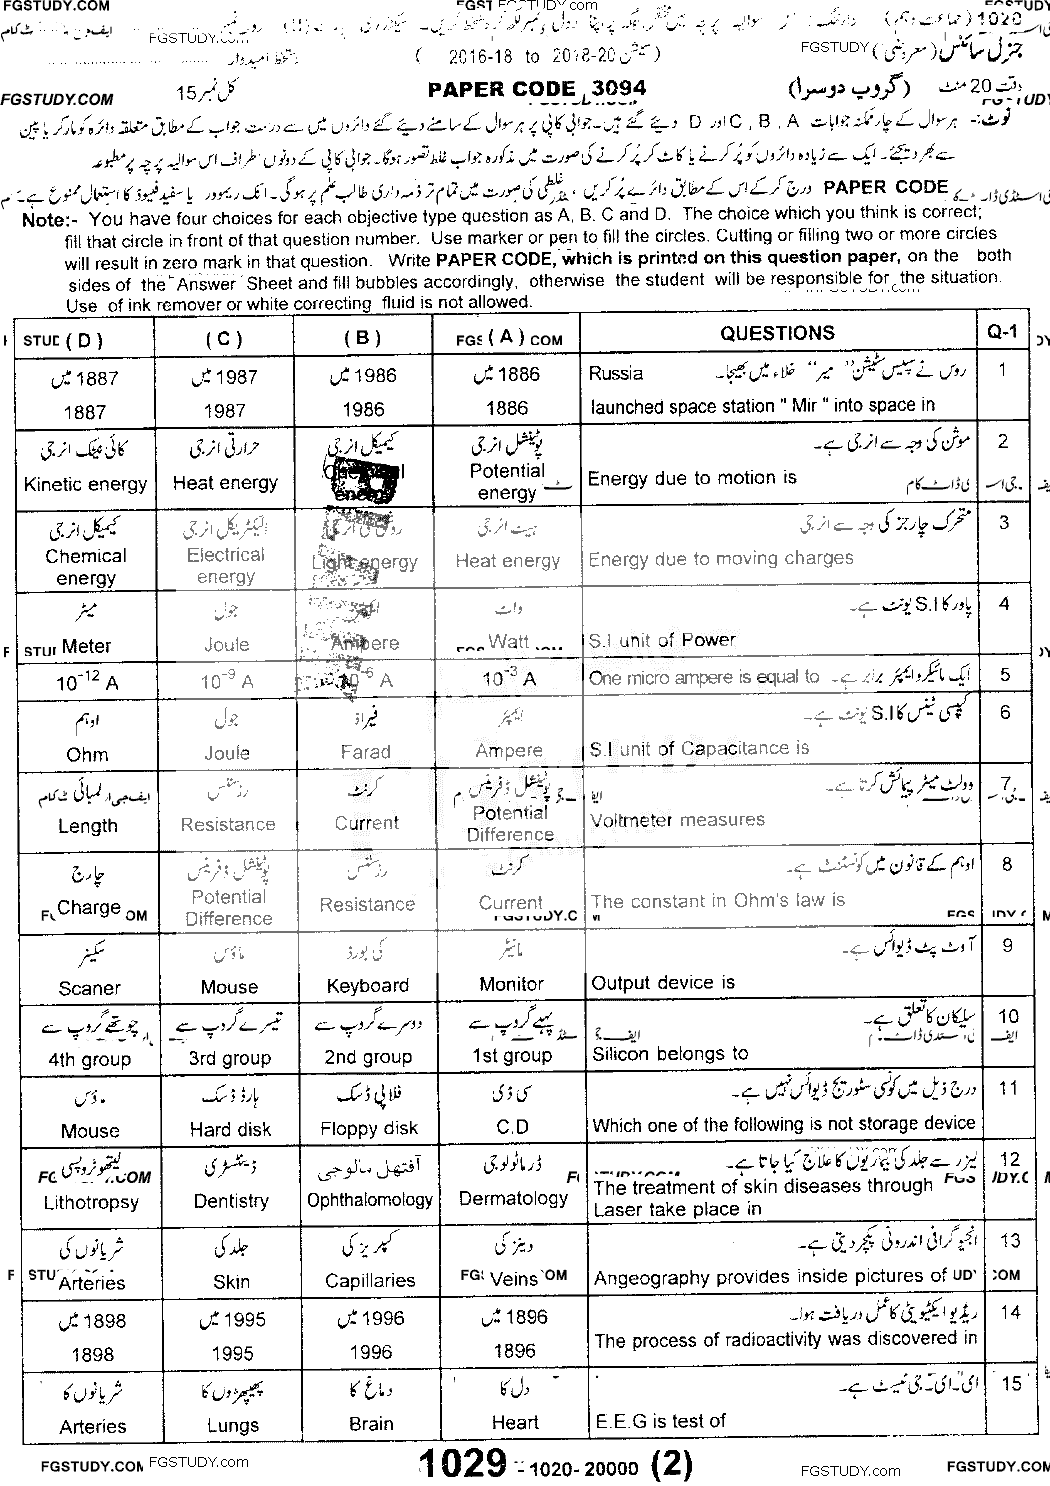 FGSTUDY.COM
FGSTUDY.COM
1020
FGSTUDY.com
FGSTUDY جنرل سائنس (معروضی)
(سیشن 2016-18 to 2018-20)
دستخط امیدوار
FGSTUDY.COM
کل نمبر 15
PAPER CODE 3094
(گروپ دوسرا)
وقت 20 منٹ
نوٹ:- ہر سوال کے چار ممکنہ جوابات A ، B ، C اور D دیئے گئے ہیں۔ جوابی کاپی پر ہر سوال کے سامنے دیئے گئے دائروں میں سے درست جواب کے مطابق متعلقہ دائرہ کو مارکر یا پین
سے بھر دیجئے۔ ایک سے زیادہ دائروں کو پُر کرنے یا کاٹ کر پُر کرنے کی صورت میں مذکورہ جواب غلط تصور ہوگا۔ جوابی کاپی کے دونوں اطراف اس سوالیہ پرچہ پر مطبوعہ
PAPER CODE درج کر کے اس کے مطابق دائرے پُر کریں ، غلطی کی صورت میں تمام تر ذمہ داری طالب علم پر ہوگی۔ انک ریموور یا سفید فلیوڈ کا استعمال ممنوع ہے۔
Note:- You have four choices for each objective type question as A, B, C and D. The choice which you think is correct;
fill that circle in front of that question number. Use marker or pen to fill the circles. Cutting or filling two or more circles
will result in zero mark in that question. Write PAPER CODE, which is printed on this question paper, on the both
sides of the Answer Sheet and fill bubbles accordingly, otherwise the student will be responsible for the situation.
Use of ink remover or white correcting fluid is not allowed.
STUD ( D ) ( C ) ( B ) FGS ( A ) COM QUESTIONS Q-1
1887 میں 1987 میں 1986 میں 1886 میں Russia روس نے سپیس سٹیشن "میر" خلاء میں بھیجا۔ 1
1887 1987 1986 1886 launched space station " Mir " into space in
کائی نیٹک انرجی حرارتی انرجی کیمیکل انرجی پوٹینشل انرجی موشن کی وجہ سے انرجی ہے۔ 2
Kinetic energy Heat energy Chemical energy Potential energy Energy due to motion is
کیمیکل انرجی الیکٹریکل انرجی روشنی کی انرجی ہیٹ انرجی متحرک چارجز کی وجہ سے انرجی 3
Chemical energy Electrical energy Light energy Heat energy Energy due to moving charges
میٹر جول ایمپیئر واٹ پاور کا S.I یونٹ ہے۔ 4
Meter Joule Ampere Watt S.I unit of Power
10⁻¹² A 10⁻⁹ A 10⁻⁶ A 10⁻³ A One micro ampere is equal to ایک مائیکرو ایمپیئر برابر ہے۔ 5
اوہم جول فیراڈ ایمپیئر کپیسی ٹینس کا S.I یونٹ ہے۔ 6
Ohm Joule Farad Ampere S.I unit of Capacitance is
لمبائی رزسٹنس کرنٹ پوٹینشل ڈفرینس وولٹ میٹر پیمائش کرتا ہے۔ 7
Length Resistance Current Potential Difference Voltmeter measures
چارج پوٹینشل ڈفرینس رزسٹنس کرنٹ اوہم کے قانون میں کونسٹنٹ ہے۔ 8
Charge Potential Difference Resistance Current The constant in Ohm's law is
سکینر ماؤس کی بورڈ مانیٹر آؤٹ پٹ ڈیوائس ہے۔ 9
Scaner Mouse Keyboard Monitor Output device is
چوتھے گروپ سے تیسرے گروپ سے دوسرے گروپ سے پہلے گروپ سے سلیکان کا تعلق ہے۔ 10
4th group 3rd group 2nd group 1st group Silicon belongs to
ماؤس ہارڈ ڈسک فلاپی ڈسک سی ڈی درج ذیل میں کونسی سٹوریج ڈیوائس نہیں ہے۔ 11
Mouse Hard disk Floppy disk C.D Which one of the following is not storage device
لیتھوٹروپسی ڈینٹسٹری آفتھل مالوجی ڈرماٹولوجی لیزر سے جلد کی بیماریوں کا علاج کیا جاتا ہے۔ 12
Lithotropsy Dentistry Ophthalomology Dermatology The treatment of skin diseases through
Laser take place in
شریانوں کی جلد کی کیپلریز کی وینز کی انجیوگرافی اندرونی پکچر دیتی ہے۔ 13
Arteries Skin Capillaries Veins Angeography provides inside pictures of
1898 میں 1995 میں 1996 میں 1896 میں ریڈیو ایکٹیویٹی کا عمل دریافت ہوا۔ 14
1898 1995 1996 1896 The process of radioactivity was discovered in
شریانوں کا پھیپھڑوں کا دماغ کا دل کا ای۔ای۔جی ٹیسٹ ہے۔ 15
Arteries Lungs Brain Heart E.E.G is test of
FGSTUDY.COM FGSTUDY.com 1029 - 1020- 20000 (2) FGSTUDY.com FGSTUDY.COM